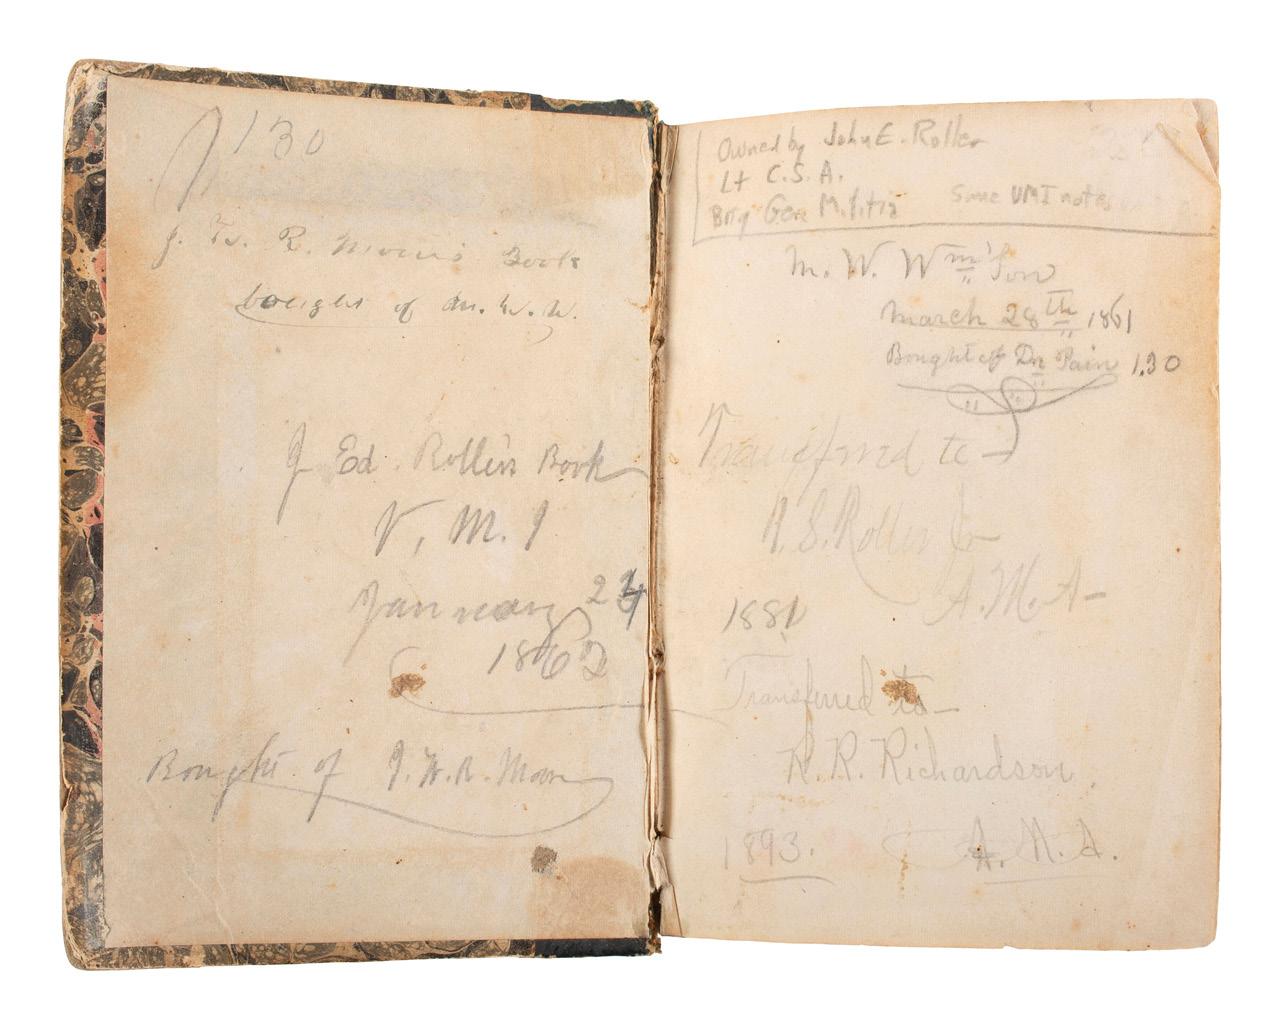 130
J. W. R. Moore's Book
bought of M. W. W.
J Ed. Roller's Book
V. M. I
January 24
1862
Bought of J. W. R. Moore
Owned by John E. Roller
Lt C. S. A.
Brig Gen Militia Some VMI notes
M. W. Wm'son
March 28th 1861
Bought of Dr Pain 1.30
Transferred to—
S. Roller Jr
A. M. A—
1881
Transferred to—
R. R. Richardson
1893. A. M. A.